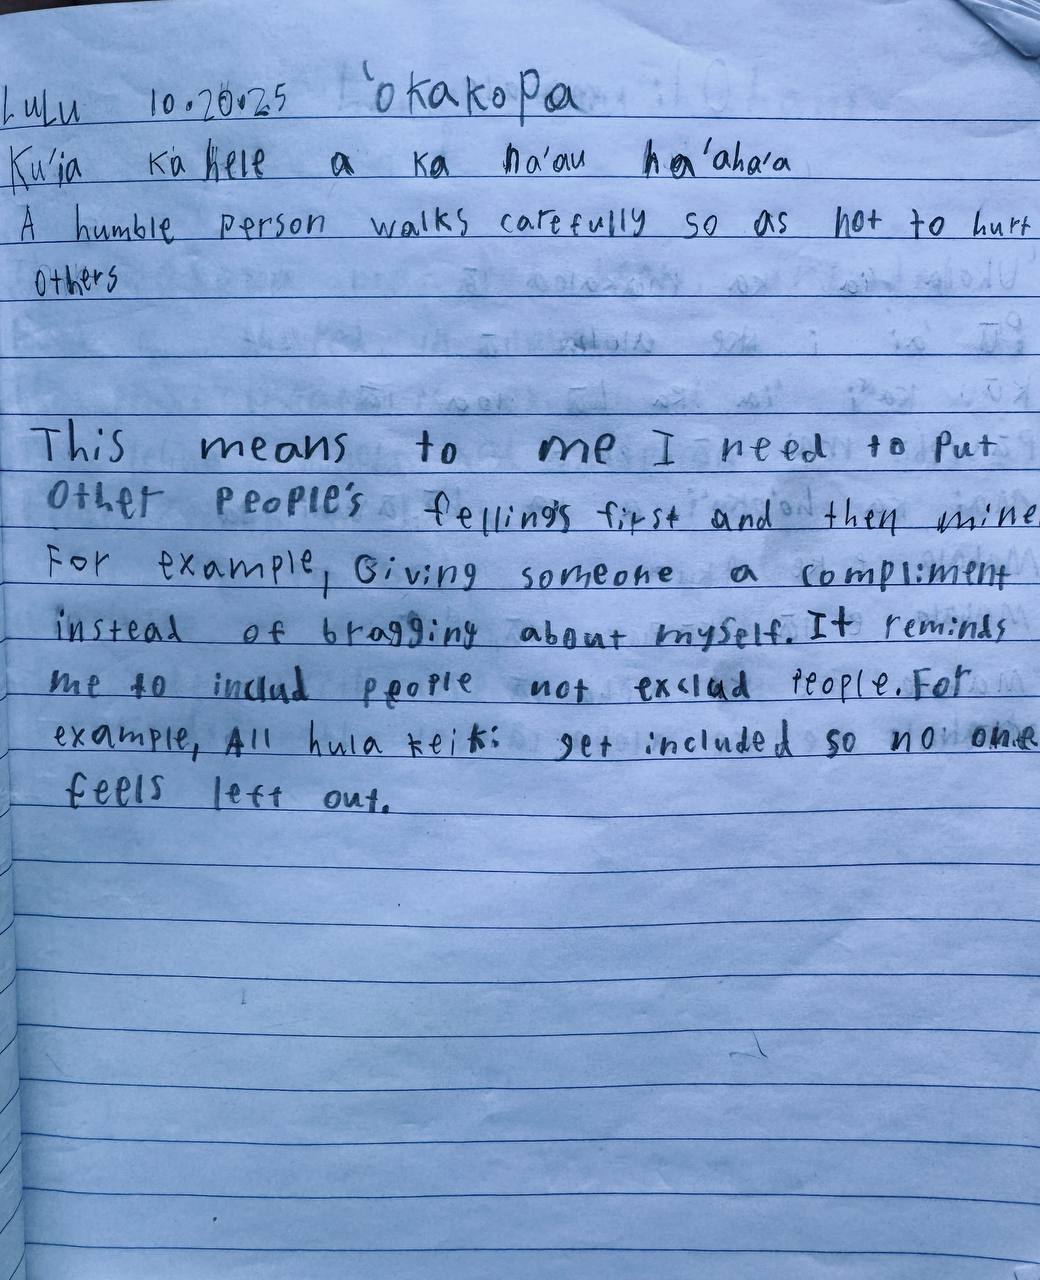 Lulu 10.20.25 'okakopa
Ku'ia ka hele a ka na'au ha'aha'a
A humble person walks carefully so as not to hurt
others
This means to me I need to put
other people's fellings first and then mine
For example, Giving someone a compliment
instead of bragging about myself. It reminds
me to includ people not exclud people. For
example, All hula keiki get included so no one
feels left out.